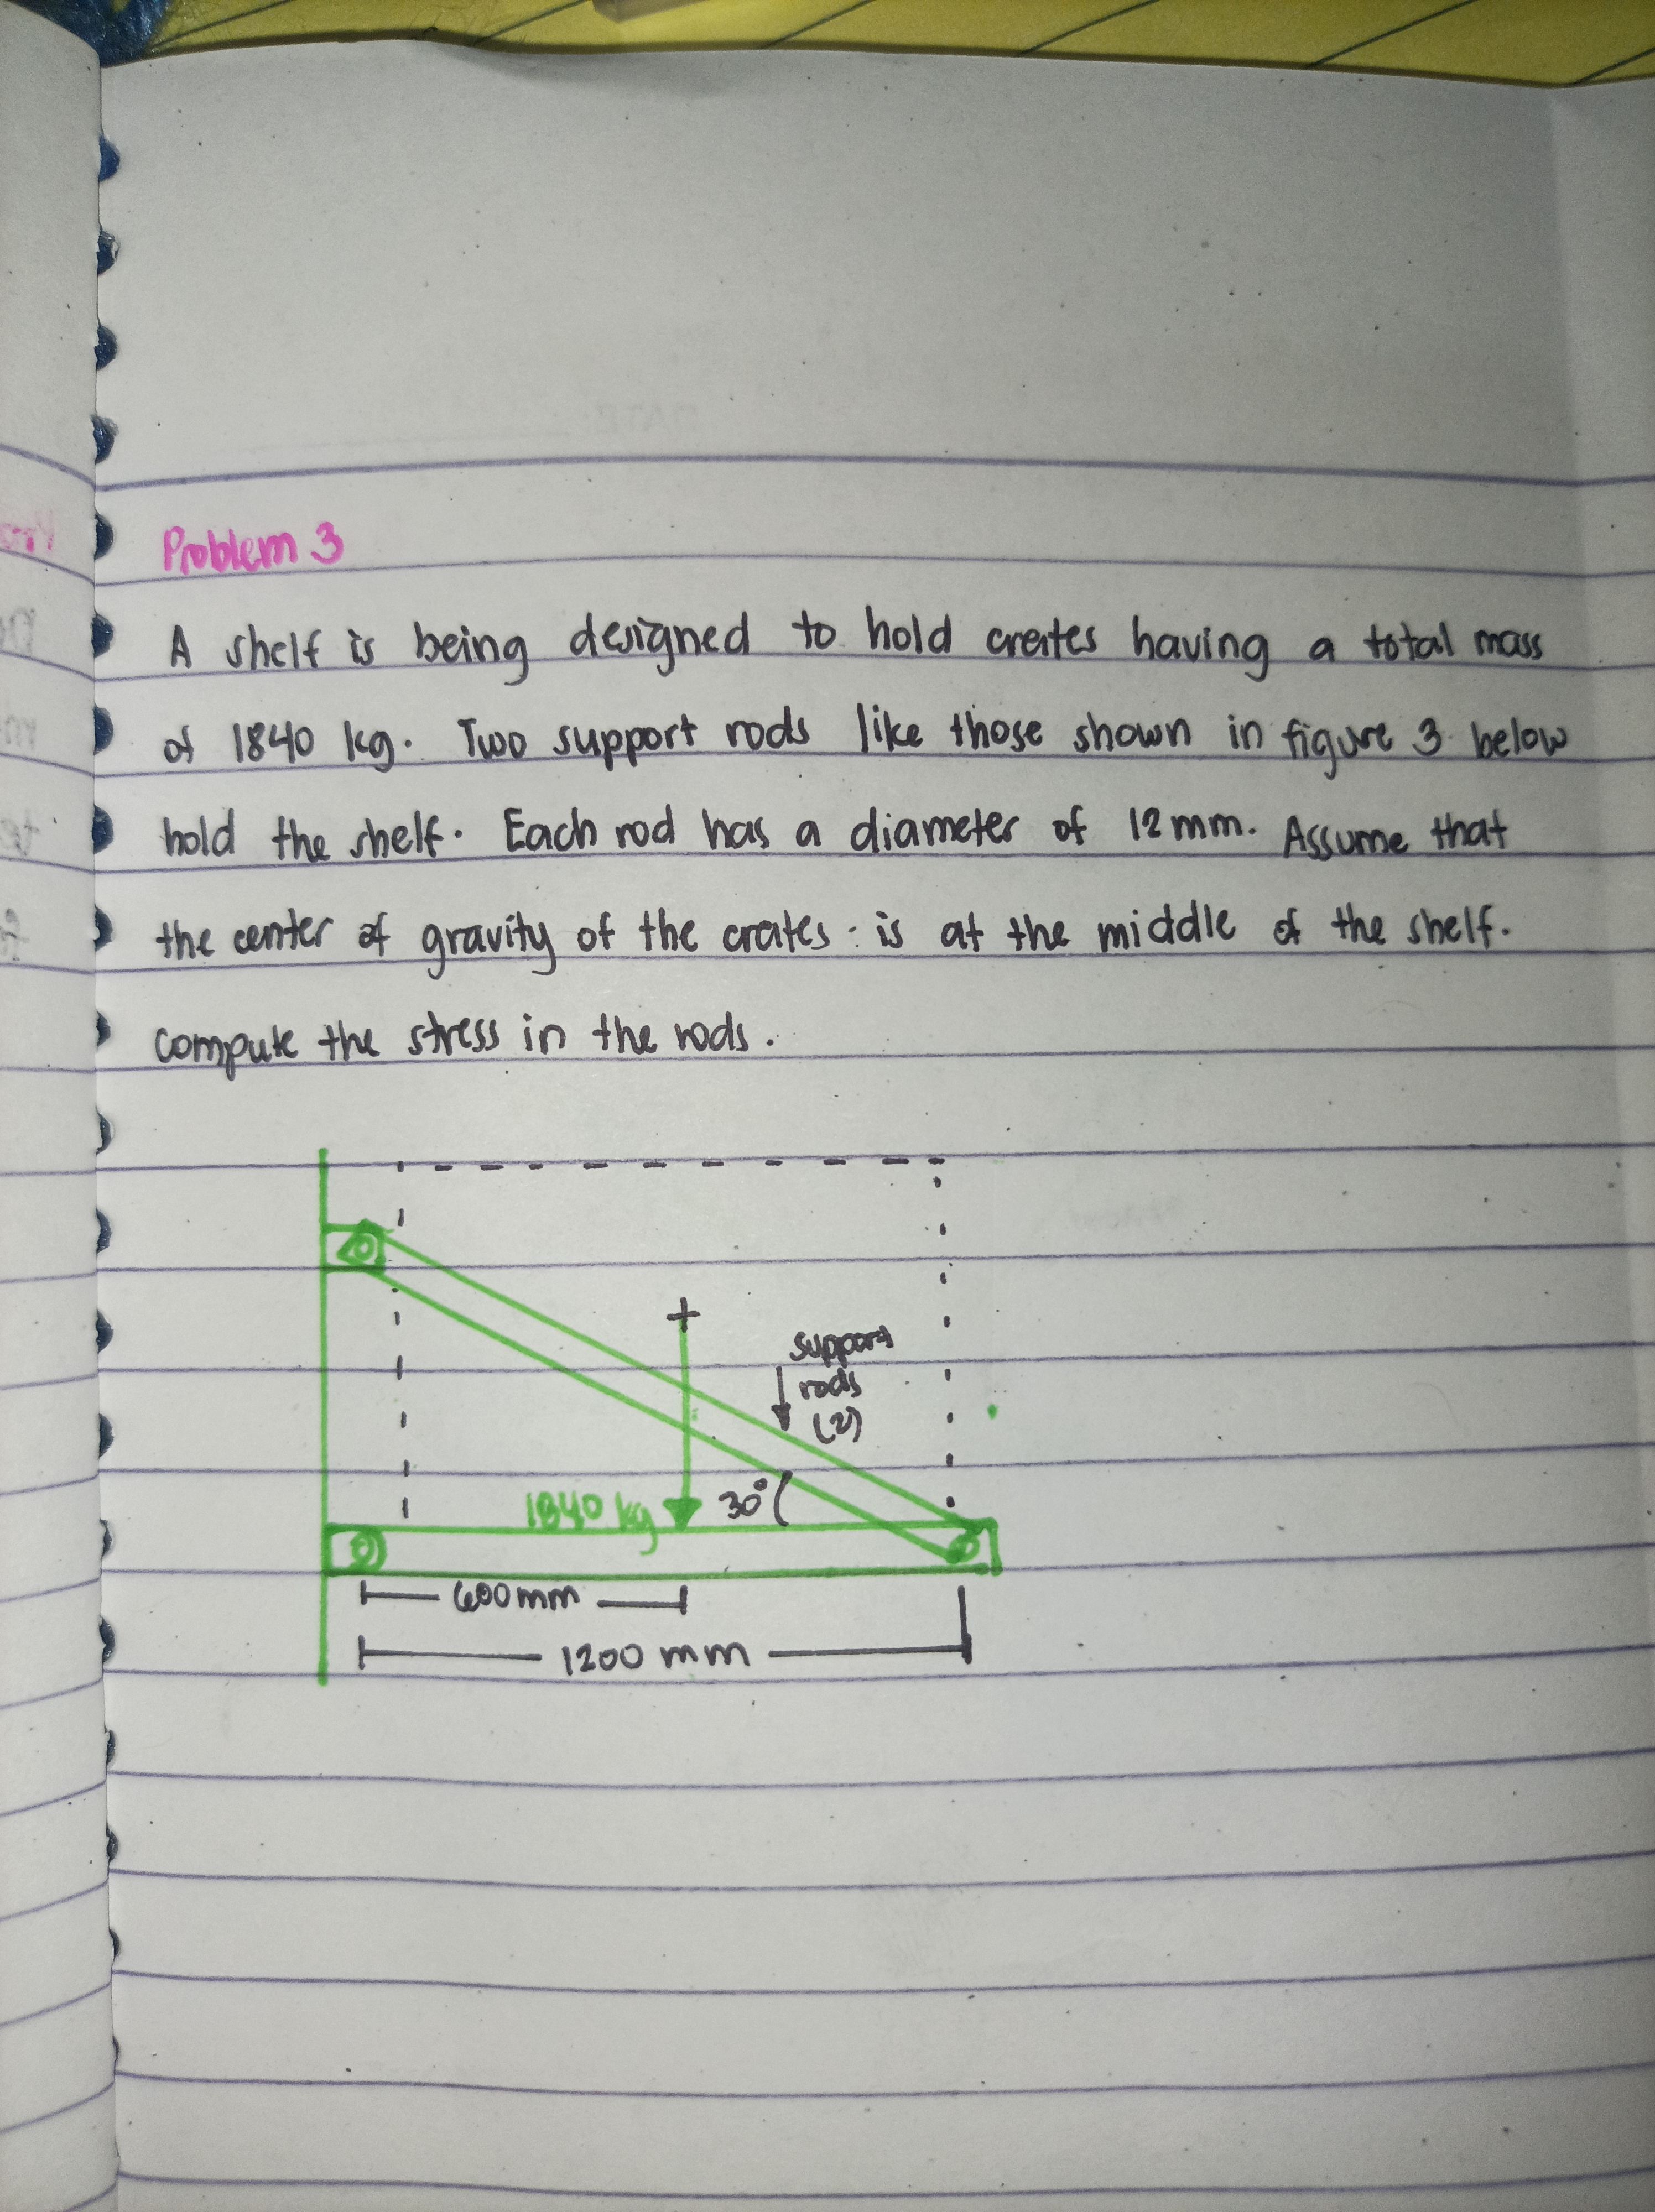 Problem 3
A shelf is being designed to hold crates having a total mass
of 1840 kg. Two support rods like those shown in figure 3 below
hold the shelf. Each rod has a diameter of 12mm. Assume that
the center of gravity of the crates is at the middle of the shelf.
compute the stress in the rods.
support
rods
(2)
1840 kg
30°
600mm
1200 mm